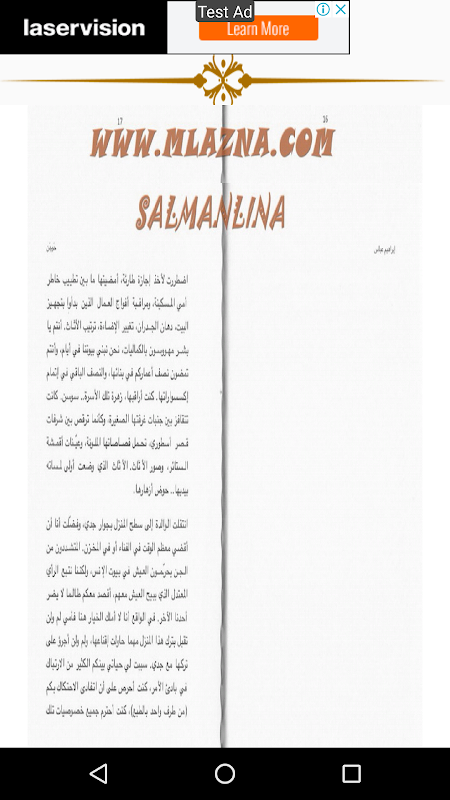 Test Ad
laservision
Learn More
17
16
WWW.MLAZNA.COM
SALMANLINA
حوجن
إبراهيم عباس
اضطررت لأخذ إجازة طارئة، أمضيتها ما بين تطييب خاطر
أمي المسكينة، ومراقبة أفواج العمال الذين بدأوا بتجهيز
البيت، دهان الجدران، تغيير الإضاءة، ترتيب الأثاث. أنتم يا
بشر مهووسون بالكماليات، نحن نبني بيوتنا في أيام، وأنتم
تمضون نصف أعماركم في بنائها، والنصف الباقي في إتمام
إكسسواراتها. كنت أراقبها، زهرة تلك الأسرة.. سوسن. كانت
تتقافز بين جنبات غرفتها الصغيرة، وكأنما ترقص بين شرفات
قصر أسطوري، تحمل قصاصاتها الملونة، وعينات أقمشة
الستائر، وصور الأثاث. الأثاث الذي وضعت أولى لمساته
بيديها.. حوض أزهارها.
انتقلت الوالدة إلى سطح المنزل بجوار جدي، وفضلت أنا أن
أقضي معظم الوقت في الفناء أو في المخزن. المتشددون من
الجن يحرّمون العيش في بيوت الإنس، ولكننا نتبع الرأي
المعتدل الذي يبيح العيش معهم، أقصد معكم طالما لا يضر
أحدنا الآخر. في الواقع أنا لا أملك الخيار هنا فأمي لم ولن
تقبل بترك هذا المنزل مهما حاولت إقناعها، ولم ولن أجرؤ على
تركها مع جدي. سببت لي حياتي بينكم الكثير من الارتباك
في بادئ الأمر، كنت أحرص على أن أتفادى الاحتكاك بكم
(من طرف واحد بالطبع)، كنت أحترم جميع خصوصيات تلك